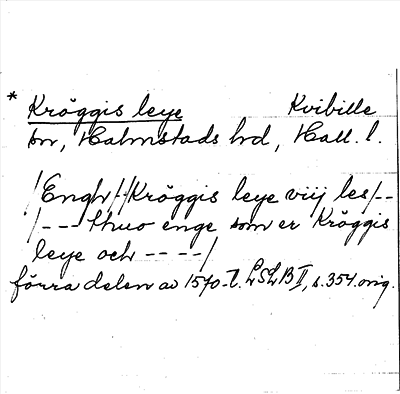 * Kröggis leye Kvibille
sn, Halmstads hrd, Hall. l.
/Engh//Kröggis leye viij les/--
/--- thuo enge som er Kröggis
leye och ----/
förra delen av 1570-t. LSLB II, s. 354. orig.